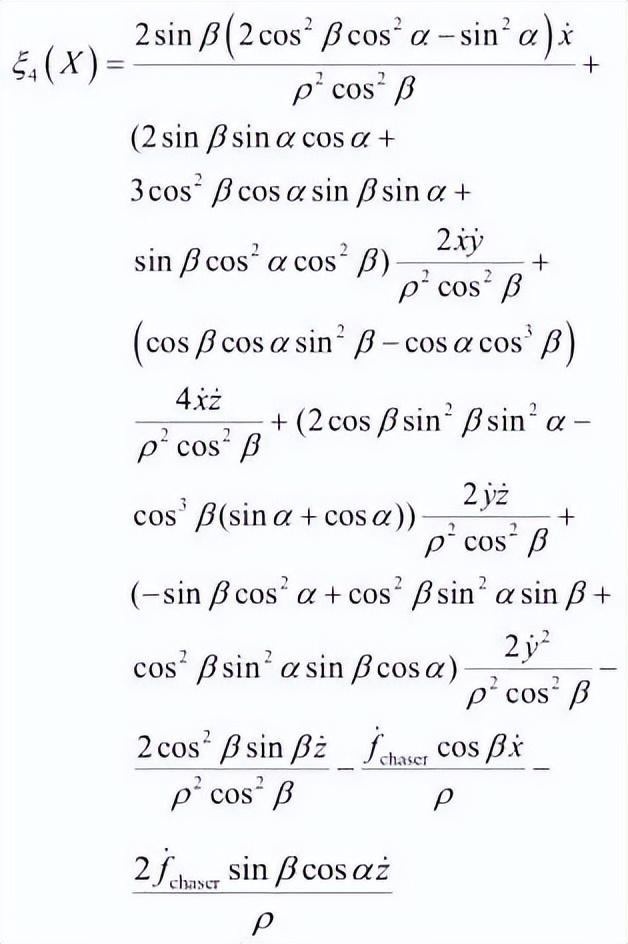 ξ₄(X) = \frac{2 sin β(2cos² β cos² α − sin² α)ẋ}{ρ² cos² β} +
(2 sin β sin α cos α +
3cos² β cos α sin β sin α +
sin β cos² α cos² β) \frac{2ẋẏ}{ρ² cos² β} +
(cos β cos α sin² β − cos α cos³ β)
\frac{4ẋż}{ρ² cos² β} + (2 cos β sin² β sin² α −
cos³ β(sin α + cos α)) \frac{2ẏż}{ρ² cos² β} +
(−sin β cos² α + cos² β sin² α sin β +
cos² β sin² α sin β cos α) \frac{2ẏ²}{ρ² cos² β} −
\frac{2 cos² β sin βż}{ρ² cos² β} − \frac{ḟ_{chaser} cos βẋ}{ρ} −
\frac{2ḟ_{chaser} sin β cos αż}{ρ}